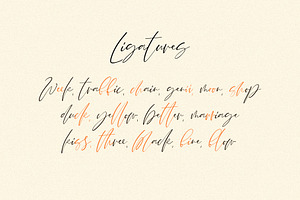 Ligatures
Work, traffic, chain, genii, moon, shop
duck, yellow, better, marriage
kiss, three, black, line, hop